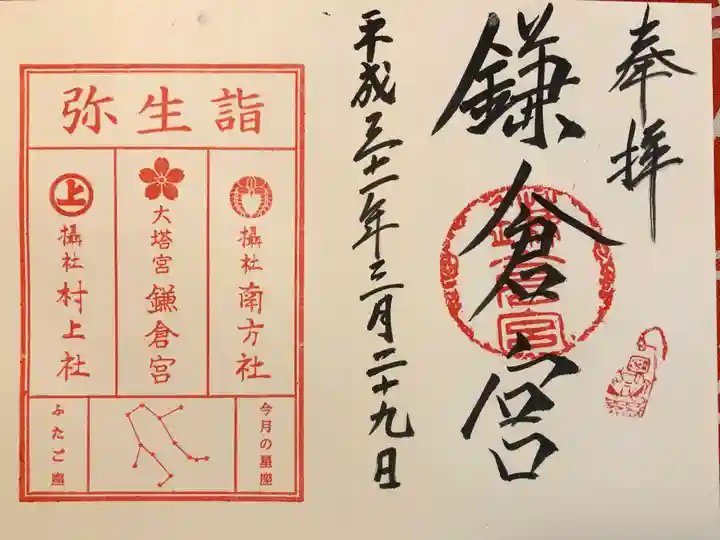 奉拝
鎌倉宮
鎌倉宮
平成三十一年三月二十九日
弥生詣
摂社 南方社
大塔宮 鎌倉宮
上
摂社 村上社
今月の星座
ふたご座